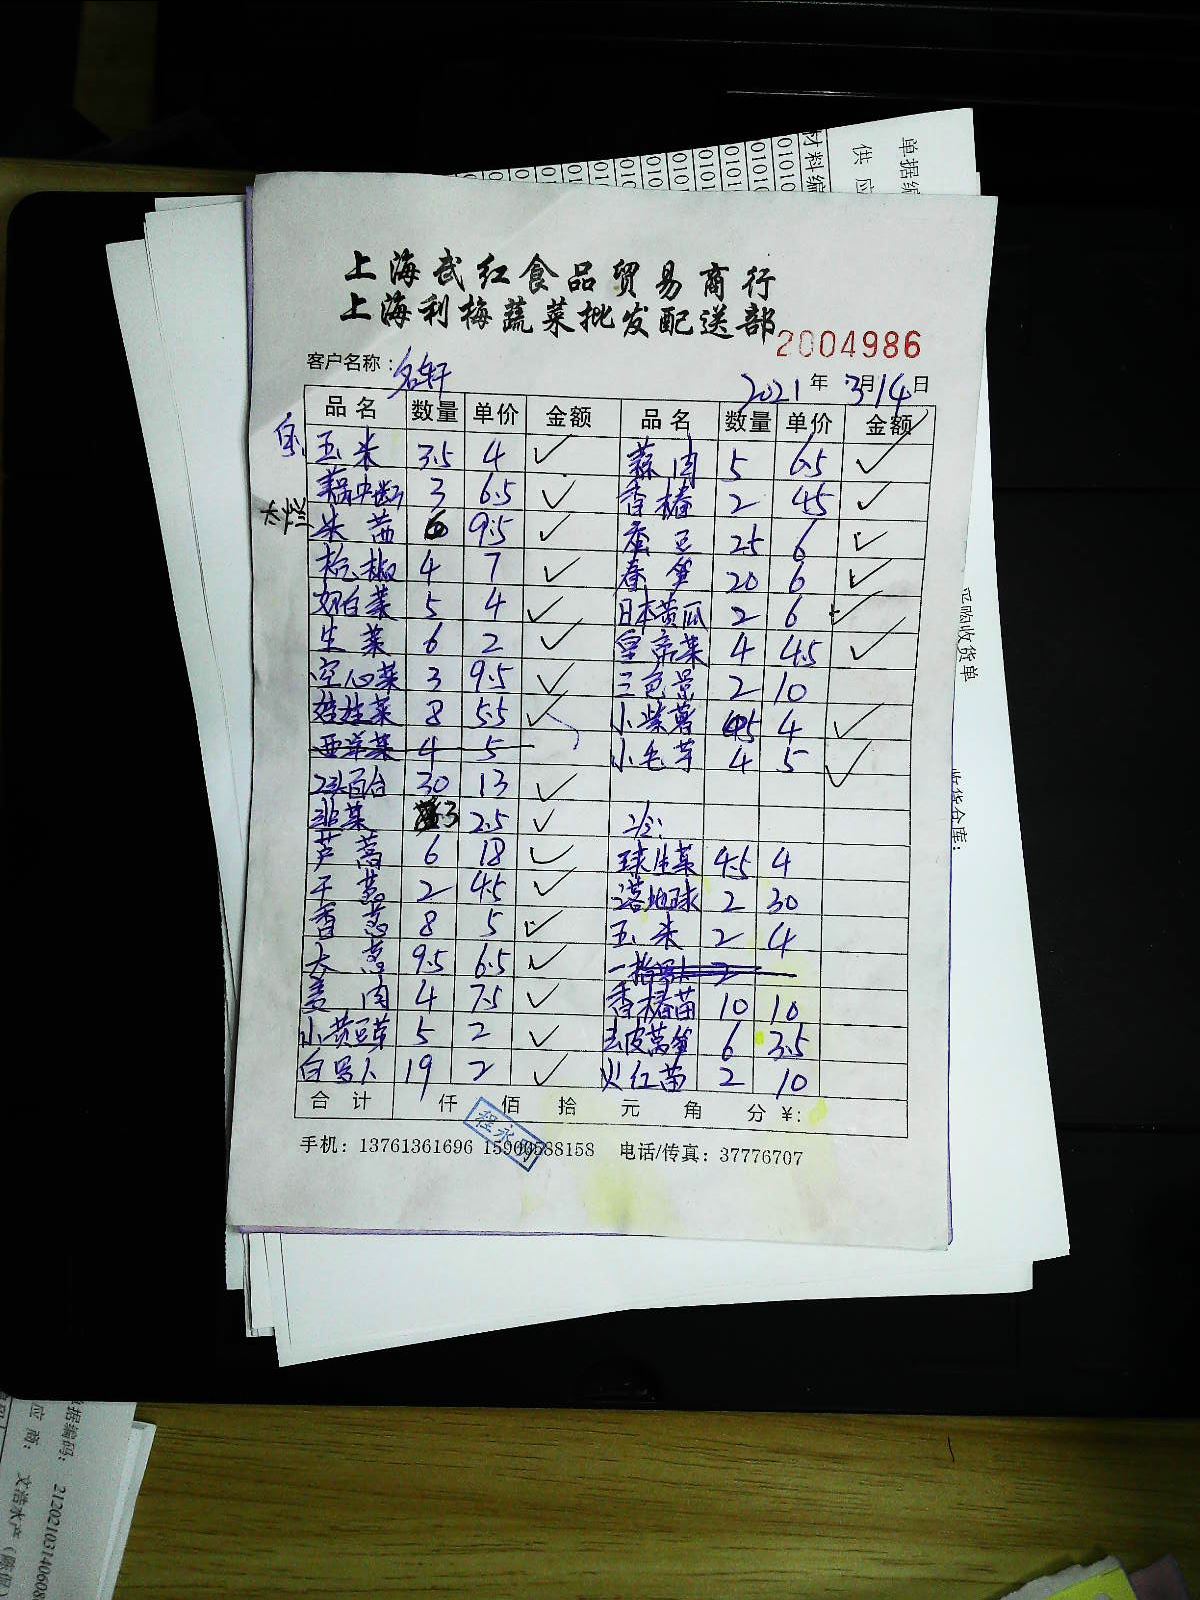 单据编
供应
材料编
上海武红食品贸易商行
上海利梅蔬菜批发配送部
2004986
客户名称：名轩
2021年3月14日
品名 数量 单价 金额 品名 数量 单价 金额
玉米 3.5 4 ✓ 蒜肉 5 6.5 ✓
3 6.5 ✓ 香椿 2 45 ✓
米茜 6 9.5 ✓ 蚕豆 25 6 ✓
杭椒 4 7 ✓ 春笋 20 6 ✓
奶白菜 5 4 ✓ 日本黄瓜 2 6 ✓
生菜 6 2 ✓ 皇帝菜 4 4.5 ✓
空心菜 3 9.5 ✓ 三色景 2 10
娃娃菜 8 5.5 ✓ 小紫薯 4.5 4 ✓
西洋菜 4 5 小毛芋 4 5 ✓
2头百合 30 13 ✓
韭菜 3 2.5 ✓ 二分:
芦蒿 6 18 ✓ 球生菜 4.5 4
干葱 2 45 ✓ 2 30
香葱 8 5 ✓ 玉米 2 4
大葱 9.5 6.5 ✓
姜肉 4 7.5 ✓ 香椿苗 10 10
小黄豆芽 5 2 ✓ 去皮莴笋 6 3.5
白萝卜 19 2 ✓ 火红苗 2 10
合计 仟 佰 拾 元 角 分 ¥:
程永
手机：13761361696 15900588158 电话/传真：37776707
采购收货单
收货仓库：
单据编码： 2120210314060
应商： 文浩水产